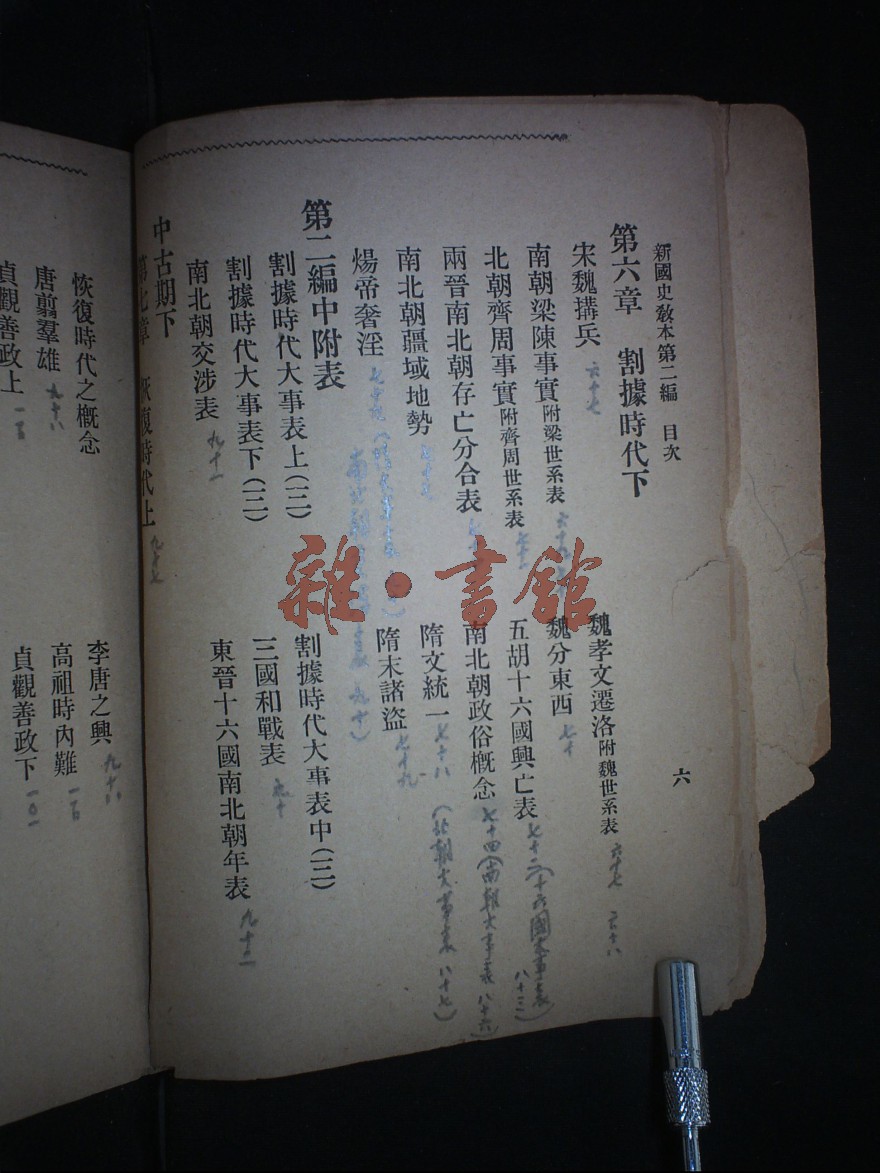 新國史教本第二編 目次
六
第六章 割據時代下
宋魏搆兵 六十七
魏孝文遷洛附魏世系表 六十七 六十八
南朝梁陳事實附梁世系表 六十九
魏分東西 七十
北朝齊周事實附齊周世系表 七十一
五胡十六國興亡表 七十二(十六國大事表 八十三)
兩晉南北朝存亡分合表
南北朝政俗概念 七十四(南朝大事表 八十六)
南北朝疆域地勢
隋文統一 七十八 (北朝大事表 八十七)
煬帝奢淫
隋末諸盜 七十九
第二編中附表
割據時代大事表上(二)
割據時代大事表中(二)
割據時代大事表下(二)
三國和戰表 九十
南北朝交涉表 九十一
東晉十六國南北朝年表 九十二
中古期下
第七章 恢復時代上 九十七
恢復時代之概念
李唐之興 九十八
唐翦羣雄 九十八
高祖時內難 一百
貞觀善政上 一百
貞觀善政下 一〇一
雜·書館